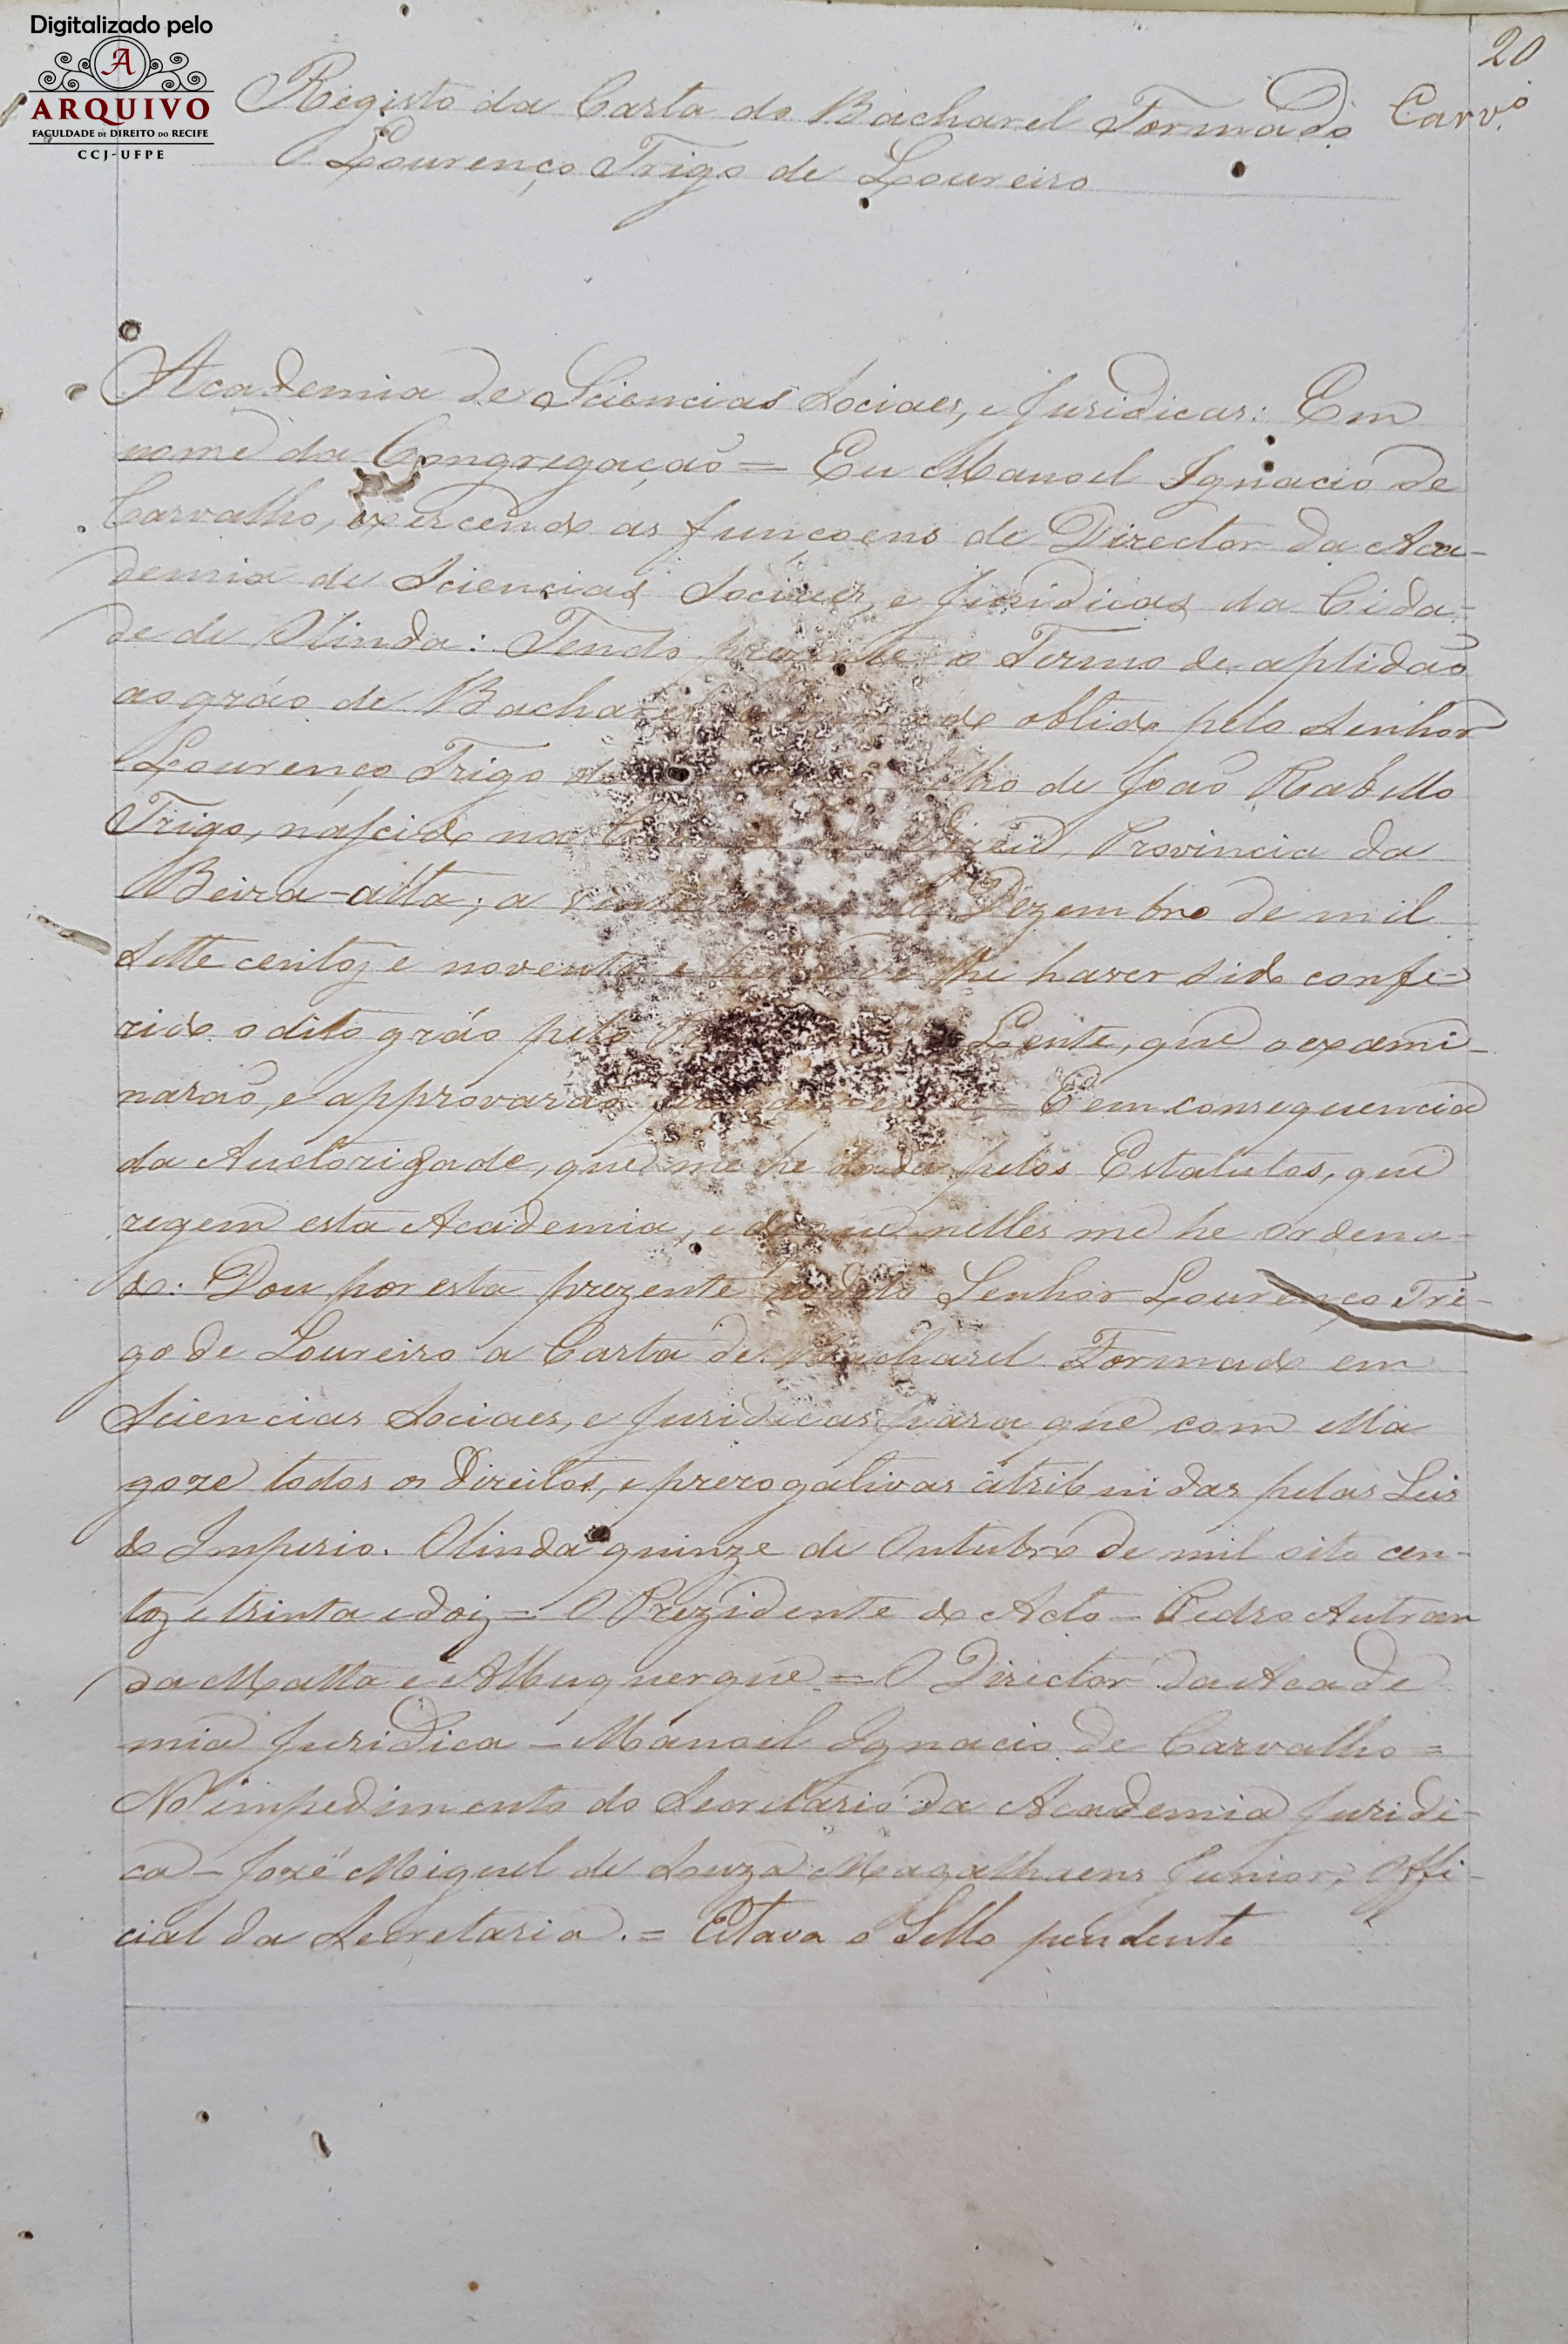 Digitalizado pelo
A
ARQUIVO
FACULDADE DE DIREITO DO RECIFE
CCJ-UFPE
20
Carv.º
Registo da Carta do Bacharel Formado
Lourenço Trigo de Loureiro
Academia de Sciencias Sociaes, e Juridicas: Em
nome da Congregação = Eu Manoel Ignacio de
Carvalho, exercendo as funcoens de Director da Aca-
demia de Sciencias Sociaes, e Juridicas da Cida-
de de Olinda: Tendo prezente o Termo de aptidão
ao gráo de Bacharel obtido pelo Senhor
Lourenço Trigo de filho de João Rabello
Trigo, nascido na Vizeu, Provincia da
Beira-alta; a vinte de Dezembro de mil
Sette centos e noventa e lhe haver sido confe-
rido o dito gráo pelo Lente, que o exami-
narão, e approvarão = E em consequencia
da Auctoridade, que me he dada pelos Estatutos, que
regem esta Academia, e do que nelles me he ordena-
do: Dou por esta prezente ao dito Senhor Lourenço Tri-
go de Loureiro a Carta de Bacharel Formado em
Sciencias Sociaes, e Juridicas para que com ella
goze todos os Direitos, e prerogativas atribuidas pelas Leis
do Imperio. Olinda quinze de Outubro de mil oito cen-
tos e trinta e dois = O Prezidente do Acto = Pedro Autran
da Matta e Albuquerque = O Director da Acade
mia Juridica = Manoel Ignacio de Carvalho =
No impedimento do Secretario da Academia Juridi-
ca = José Miguel de Souza Magalhaens Junior, Offi-
cial da Secretaria. = Estava o Sello pendente